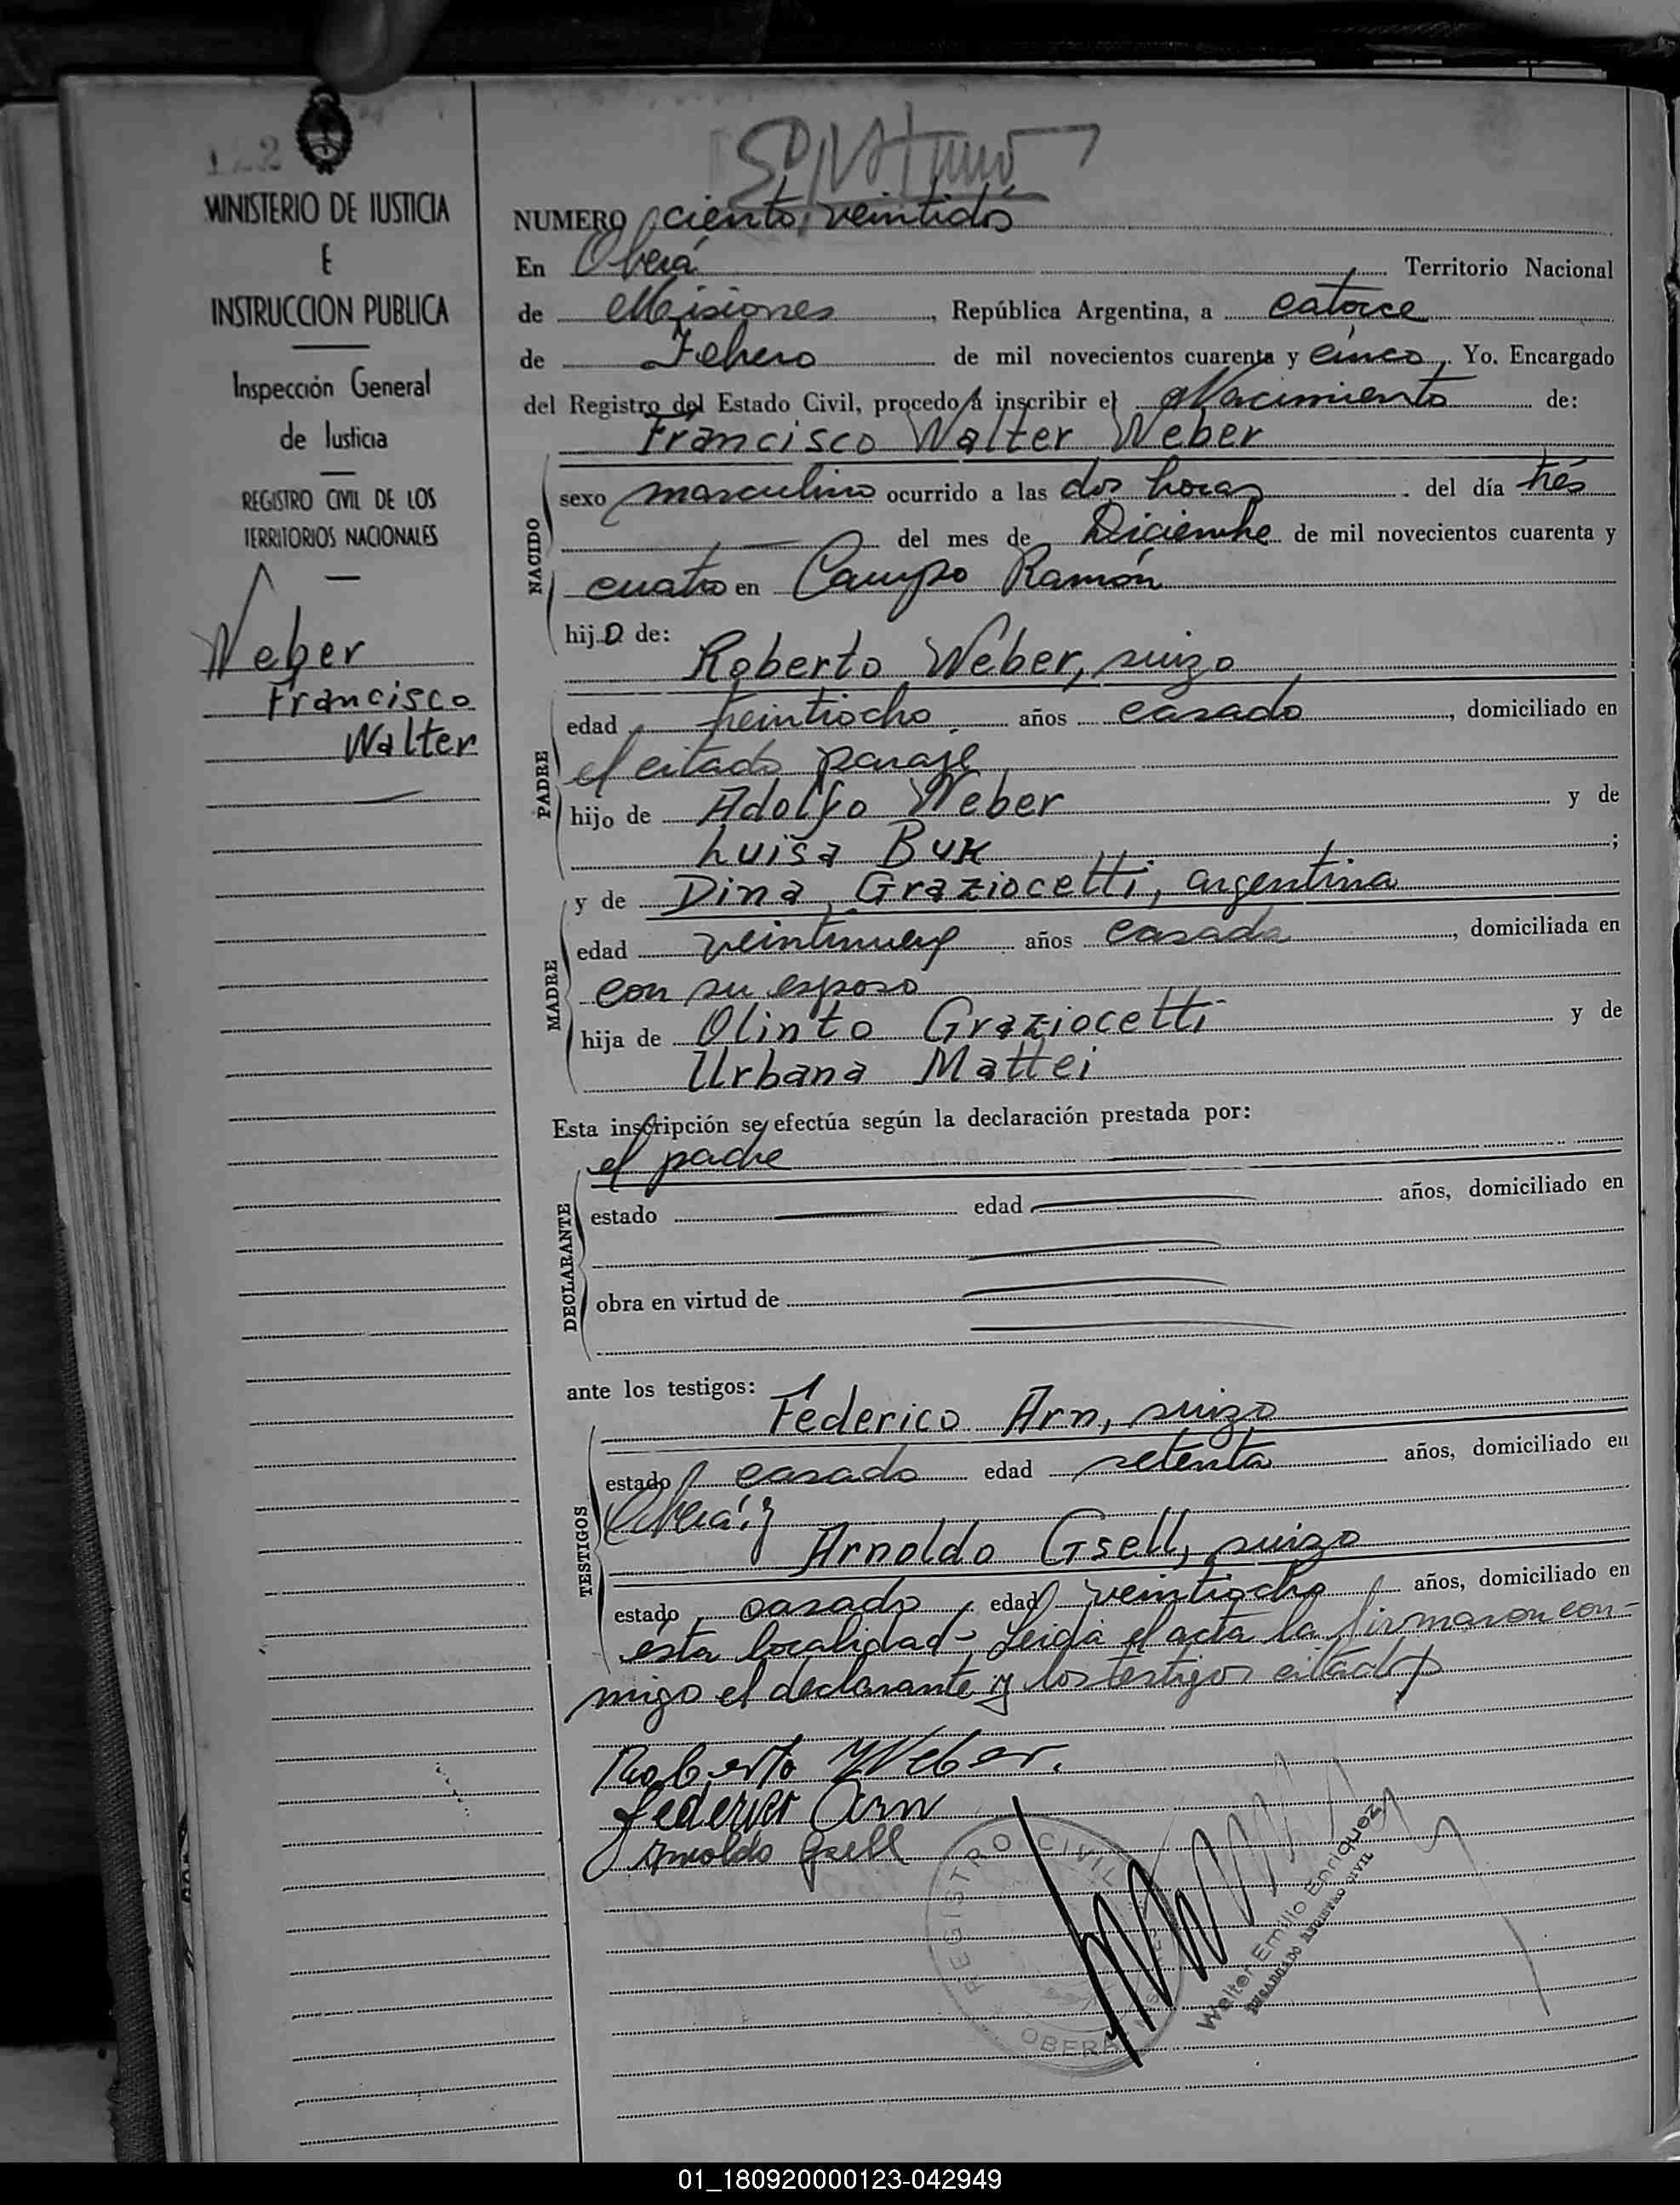 122
MINISTERIO DE JUSTICIA
E
INSTRUCCION PUBLICA
Inspección General
de Justicia
REGISTRO CIVIL DE LOS
TERRITORIOS NACIONALES
Weber
Francisco
Walter
NUMERO ciento veintidós
En Oberá Territorio Nacional
de Misiones, República Argentina, a catorce
de Febrero de mil novecientos cuarenta y cinco, Yo. Encargado
del Registro del Estado Civil, procedo a inscribir el Nacimiento de:
Francisco Walter Weber
NACIDO
sexo masculino ocurrido a las dos horas del día trés
del mes de Diciembre de mil novecientos cuarenta y
cuatro en Campo Ramón
hijo de:
Roberto Weber, suizo
PADRE
edad treintiocho años casado, domiciliado en
el citado paraje
hijo de Adolfo Weber y de
Luisa Buk ;
MADRE
y de Dina Graziocetti, argentina
edad veintinueve años casada, domiciliada en
con su esposo
hija de Olinto Graziocetti y de
Urbana Mattei
Esta inscripción se efectúa según la declaración prestada por:
el padre
DECLARANTE
estado edad años, domiciliado en
obra en virtud de
ante los testigos:
Federico Arn, suizo
TESTIGOS
estado casado edad setenta años, domiciliado en
Oberá; y
Arnoldo Gsell, suizo
estado casado, edad veintiocho años, domiciliado en
esta localidad- Leida el acta la firmaron con-
migo el declarante y los testigos citados
Roberto Weber.
Federico Arn
Arnoldo Gsell
REGISTRO CIVIL
OBERA
Walter Emilio Enriquez
ENCARGADO REGISTRO CIVIL
01_180920000123-042949